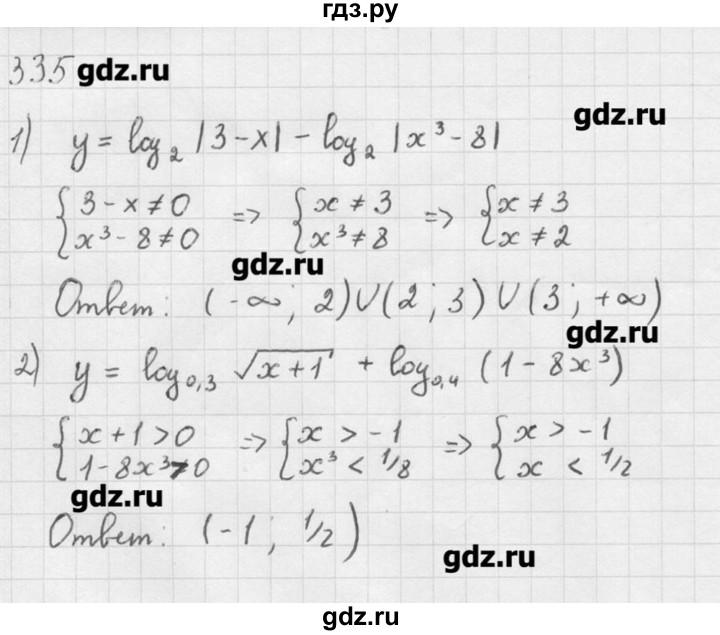 гдз.ру
335 gdz.ru
gdz.ru
1) y = log₂ |3 - x| - log₂ |x³ - 8|
{ 3 - x ≠ 0 => { x ≠ 3 => { x ≠ 3
{ x³ - 8 ≠ 0 { x³ ≠ 8 { x ≠ 2
gdz.ru
Ответ: (-∞; 2) ∪ (2; 3) ∪ (3; +∞)
gdz.ru
2) y = log₀,₃ √(x + 1) + log₀,₄ (1 - 8x³)
{ x + 1 > 0 => { x > -1 => { x > -1
{ 1 - 8x³ > 0 { x³ < 1/8 { x < 1/2
gdz.ru
Ответ: (-1; 1/2)
gdz.ru
gdz.ru